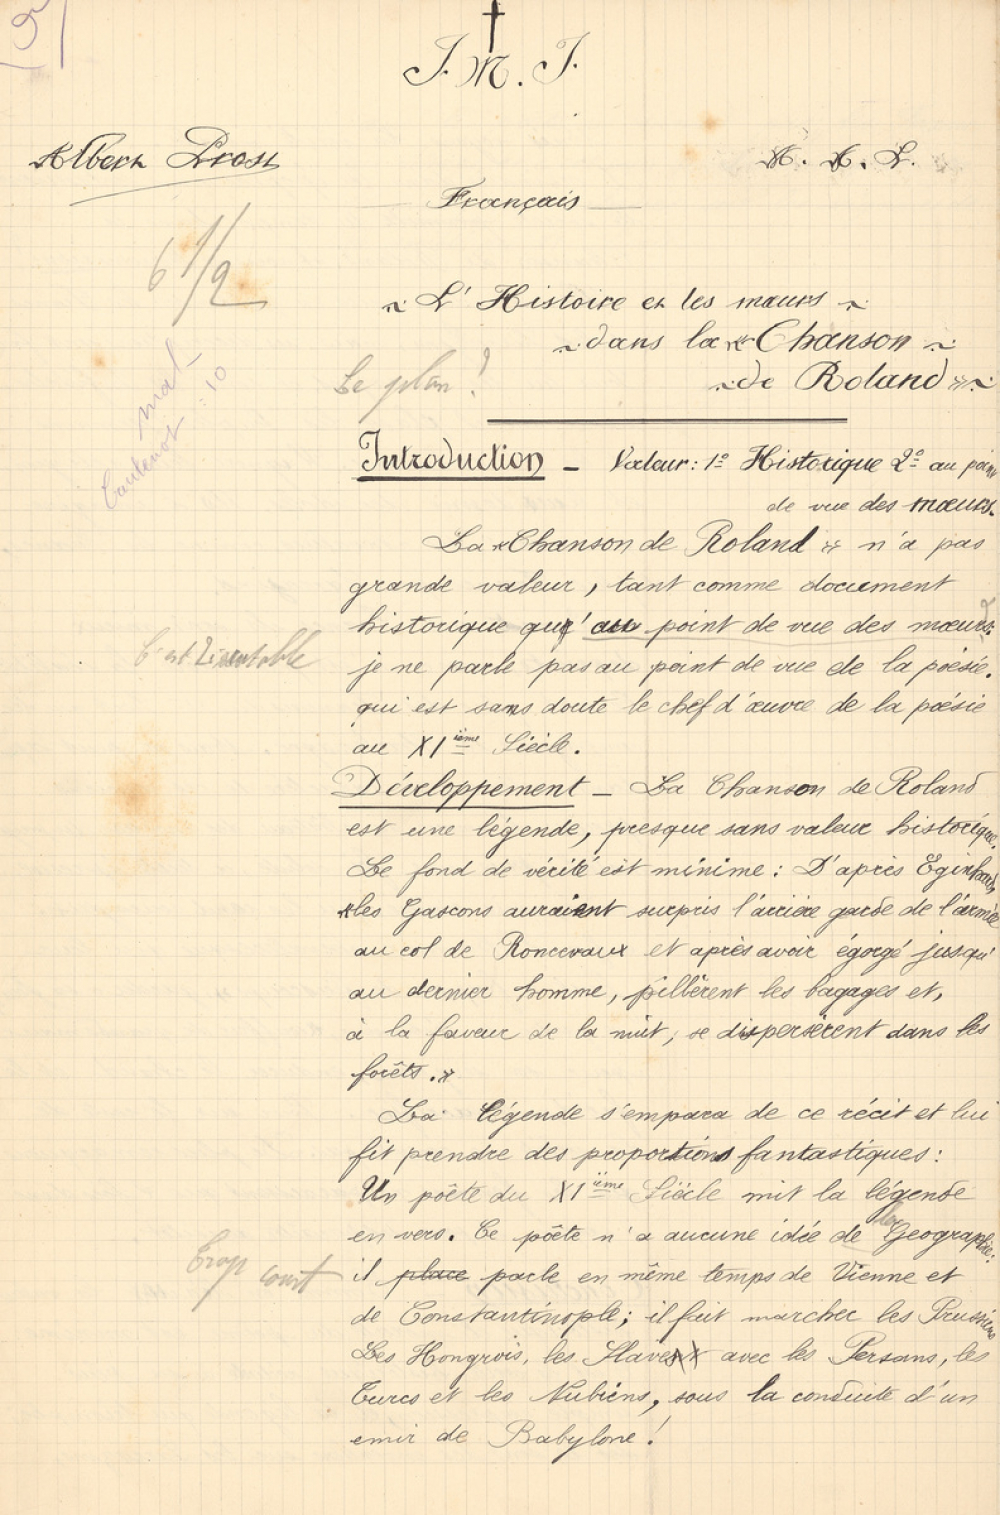 J. M. J.
Albert Prost
Français
6 1/2
L' Histoire et les mœurs
dans la « Chanson
de Roland »
Le plan !
mal
: 10
Introduction – Valeur : 1º Historique 2º au point
de vue des mœurs.
La « Chanson de Roland » n'a pas
grande valeur, tant comme document
historique qu'au point de vue des mœurs :
je ne parle pas au point de vue de la poésie.
qui est sans doute le chef d'œuvre de la poésie
au XIième Siècle.
Développement – La Chanson de Roland
est une légende, presque sans valeur historique.
Le fond de vérité est minime : D'après Eginhard,
« les Gascons auraient surpris l'arrière garde de l'armée
au col de Roncevaux et après avoir égorgé jusqu'
au dernier homme, pillèrent les bagages et,
à la faveur de la nuit, se dispersèrent dans les
forêts. »
La légende s'empara de ce récit et lui
fit prendre des proportions fantastiques :
Un poête du XIième Siècle mit la légende
en vers. Ce poête n'a aucune idée de la Geographie :
Trop court
il place parle en même temps de Vienne et
de Constantinople ; il fait marcher les Prussiens
Les Hongrois, les Slaves avec les Persans, les
Turcs et les Nubiens, sous la conduite d'un
emir de Babylone !